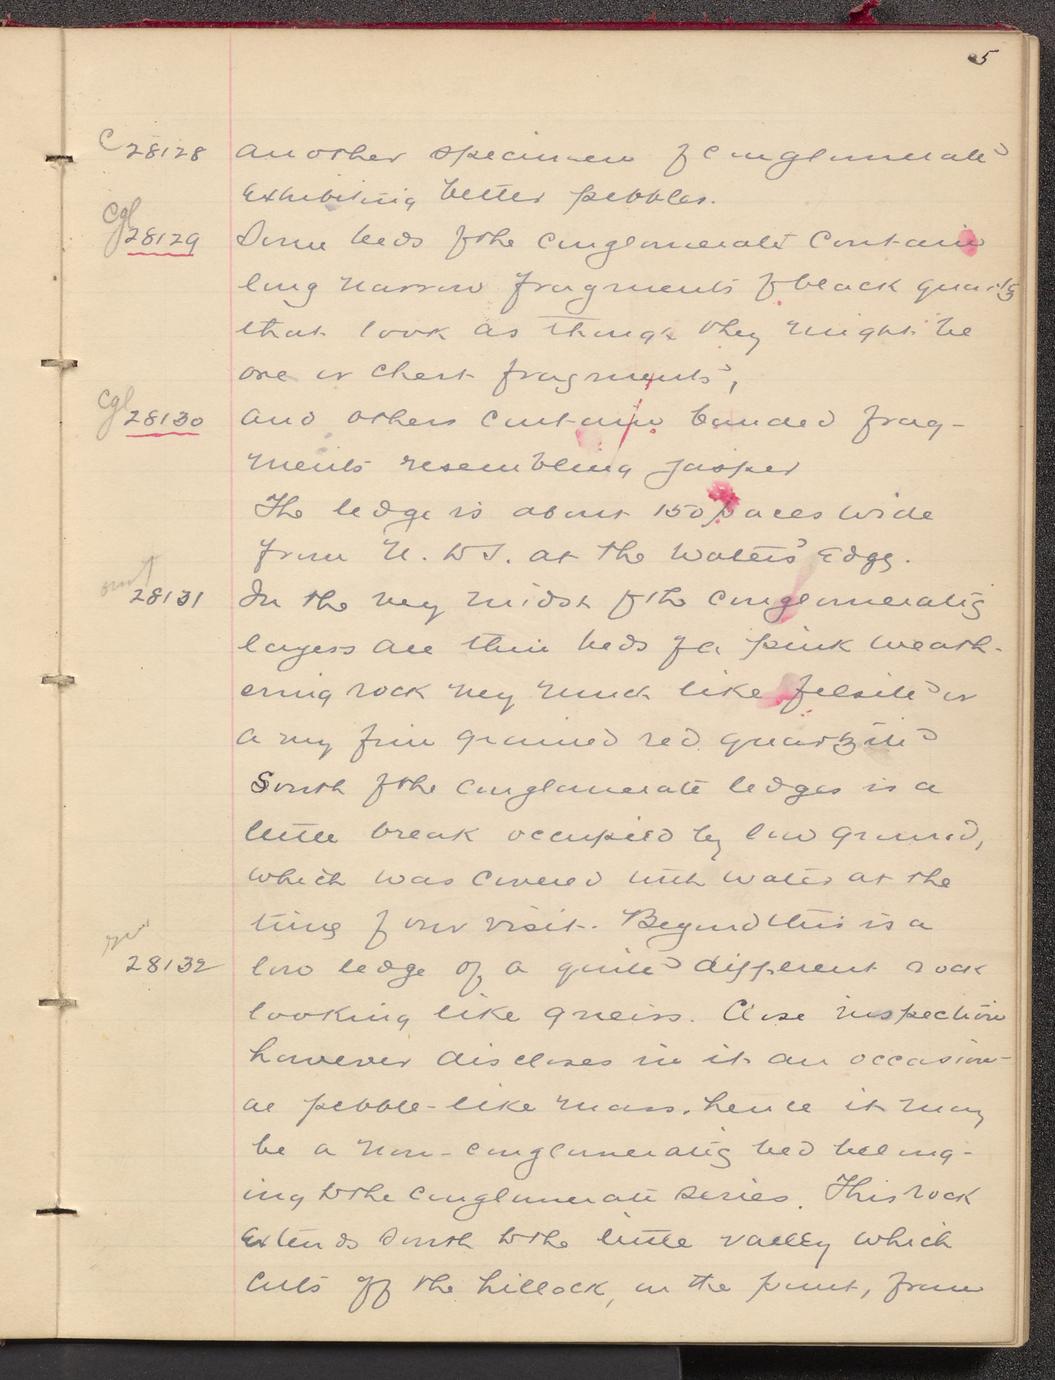 5
C 28128 another specimen of conglomerate
exhibiting better pebbles.
cgl 28129 Some beds of the conglomerate contain
long narrow fragments of black quartz
that look as though they might be
ore or chert fragments,
cgl 28130 and others contain banded frag-
ments resembling jasper
The ledge is about 150 paces wide
from N. to S. at the waters edge.
28131 In the very midst of the conglomeratic
layers are thin beds of a pink weath-
ering rock very much like felsite or
a very fine grained red quartzite
South of the conglomerate ledges is a
little break occupied by low ground,
which was covered with water at the
time of our visit. Beyond this is a
28132 low ledge of a quite different rock
looking like gneiss. Close inspection
however discloses in it an occasion-
al pebble-like mass, hence it may
be a non-conglomeratic bed belong-
ing to the conglomerate series. This rock
extends south to the little valley which
cuts off the hillock, or the point, from